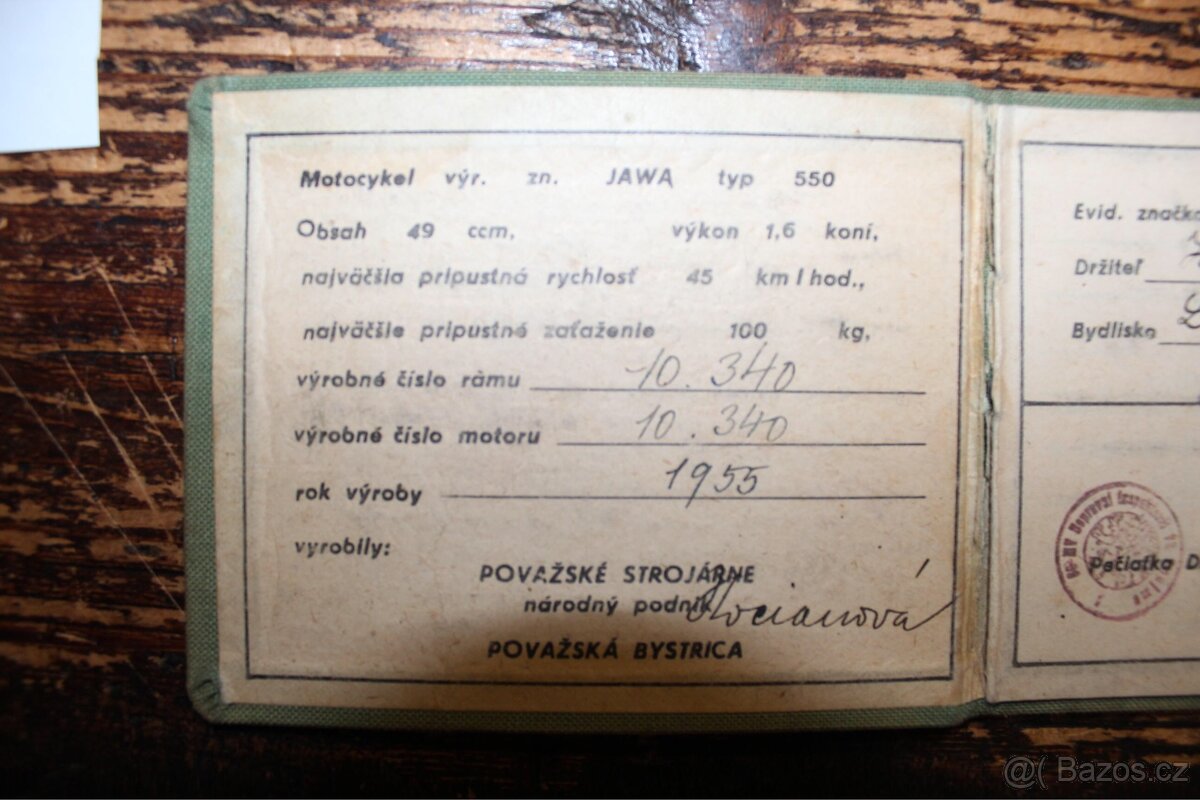 Motocykel výr. zn. JAWA typ 550
Obsah 49 ccm, výkon 1,6 koní,
najväčšia pripustná rychlosť 45 km / hod.,
najväčšie pripustné zaťaženie 100 kg,
výrobné číslo ràmu 10.340
výrobné číslo motoru 10.340
rok výroby 1955
vyrobily:
POVAŽSKÉ STROJÁRNE
národný podnik
Kocianová
POVAŽSKÁ BYSTRICA
Evid. značka
Držiteľ
Bydlisko
Pečiatka D
@( Bazos.cz